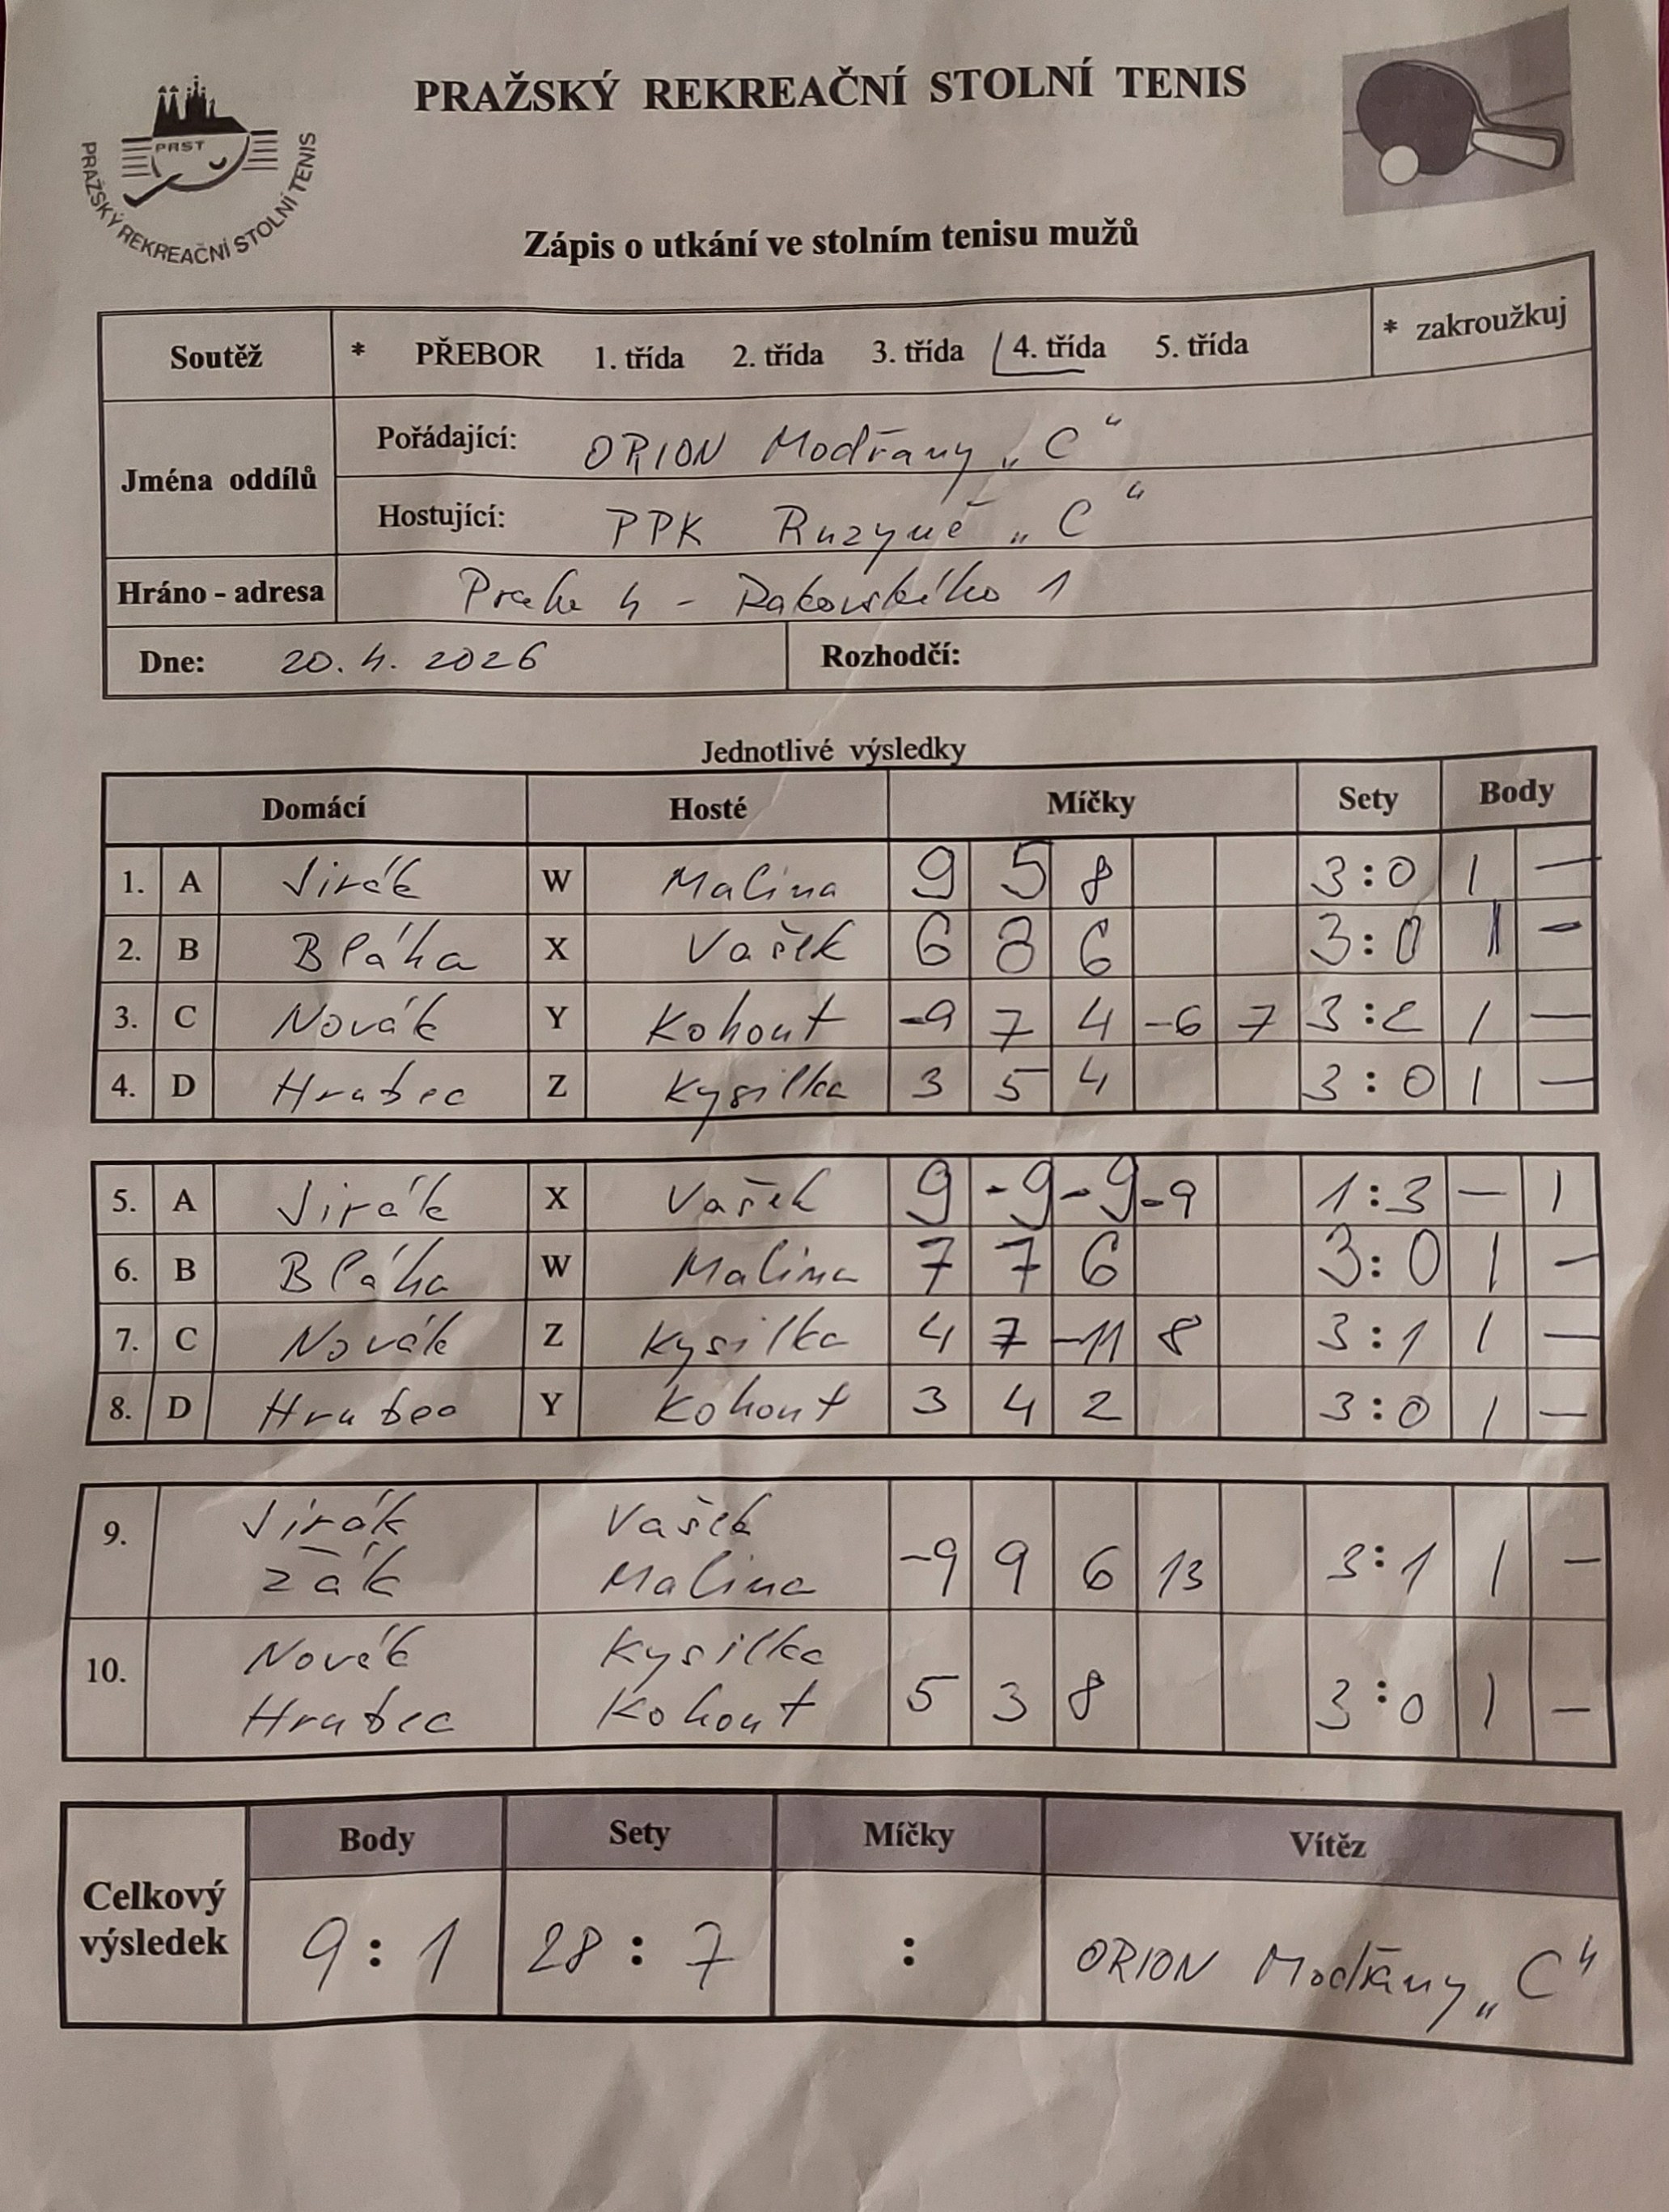 PRAŽSKÝ REKREAČNÍ STOLNÍ TENIS
PRST
PRAŽSKÝ REKREAČNÍ STOLNÍ TENIS
Zápis o utkání ve stolním tenisu mužů
Soutěž * PŘEBOR 1. třída 2. třída 3. třída 4. třída 5. třída * zakroužkuj
Jména oddílů
Pořádající: ORION Modřany „C“
Hostující: PPK Ruzyně „C“
Hráno - adresa Praha 4 - Rakovského 1
Dne: 20. 4. 2026 Rozhodčí:
Jednotlivé výsledky
Domácí Hosté Míčky Sety Body
1. A Jirák W Malina 9 5 8 3:0 1 –
2. B Bláha X Vašek 6 8 6 3:0 1 –
3. C Novák Y Kohout -9 7 4 -6 7 3:2 1 –
4. D Hrubec Z Kysilka 3 5 4 3:0 1 –
5. A Jirák X Vašek 9 -9 -9 -9 1:3 – 1
6. B Bláha W Malina 7 7 6 3:0 1 –
7. C Novák Z Kysilka 4 7 -11 8 3:1 1 –
8. D Hrubec Y Kohout 3 4 2 3:0 1 –
9. Jirák Vašek
Zák Malina -9 9 6 13 3:1 1 –
10. Novák Kysilka
Hrubec Kohout 5 3 8 3:0 1 –
Celkový výsledek
Body Sety Míčky Vítěz
9:1 28:7 : ORION Modřany „C“